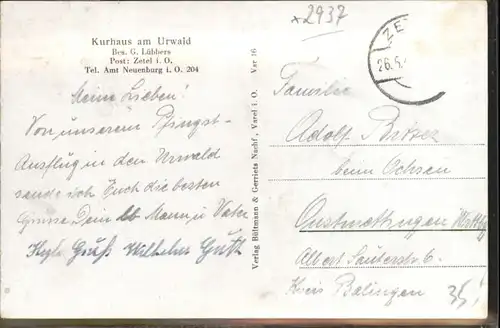 x2937
Kurhaus am Urwald
Bes. G. Lübbers
Post: Zetel i. O.
Tel. Amt Neuenburg i. O. 204
Meine Lieben!
Von unserem Pfingst-
Ausflug in den Urwald
sende ich Euch die besten
Grüsse Dein lb Mann u. Vater
Gruß Wilhelm
Verlag Bültmann & Gerriets Nachf., Varel i. O. Var 16
ZE
26.5.
Familie
Adolf
beim Ochsen
Onstmettingen Württbg
Albert Sauterstr 6.
Kreis Balingen
35!